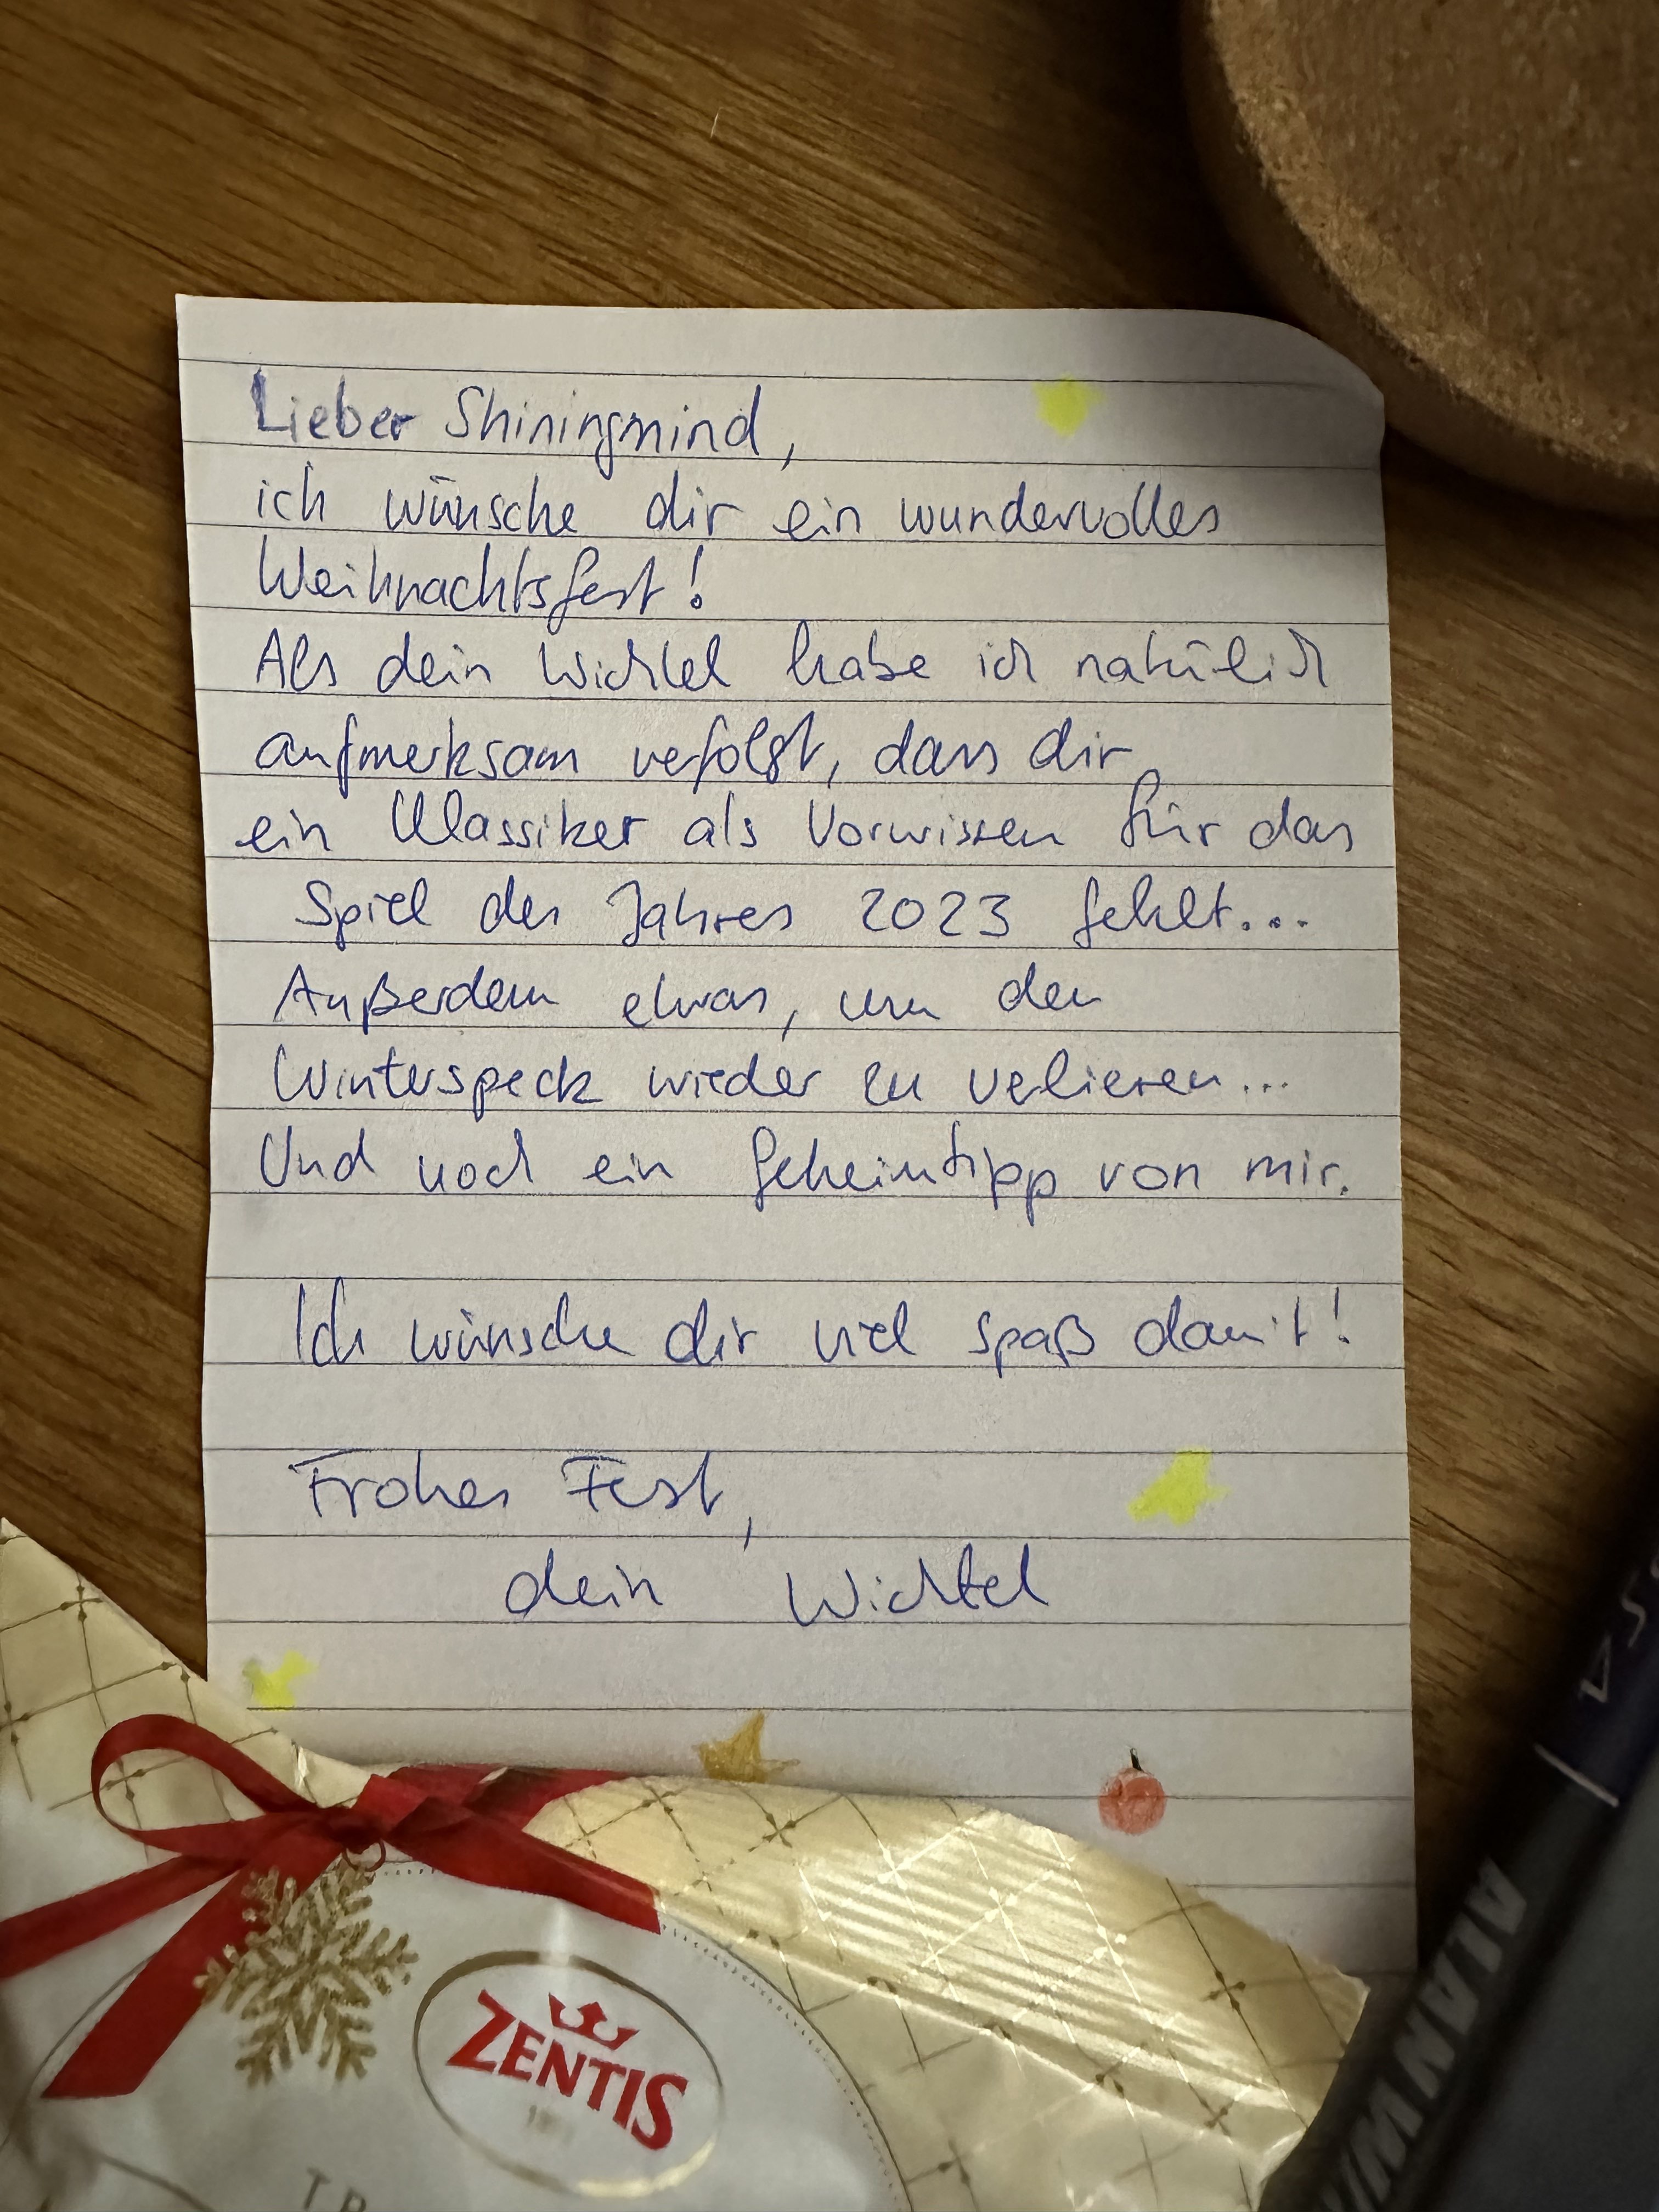 Lieber Shiningmind,
ich wünsche dir ein wundervolles
Weihnachtsfest!
Als dein Wichtel habe ich natürlich
aufmerksam verfolgt, dass dir
ein Klassiker als Vorwissen für das
Spiel des Jahres 2023 fehlt...
Außerdem etwas, um den
Winterspeck wieder zu verlieren...
Und noch ein Geheimtipp von mir.
Ich wünsche dir viel Spaß damit!
Frohes Fest,
dein Wichtel
ZENTIS
ALAN W